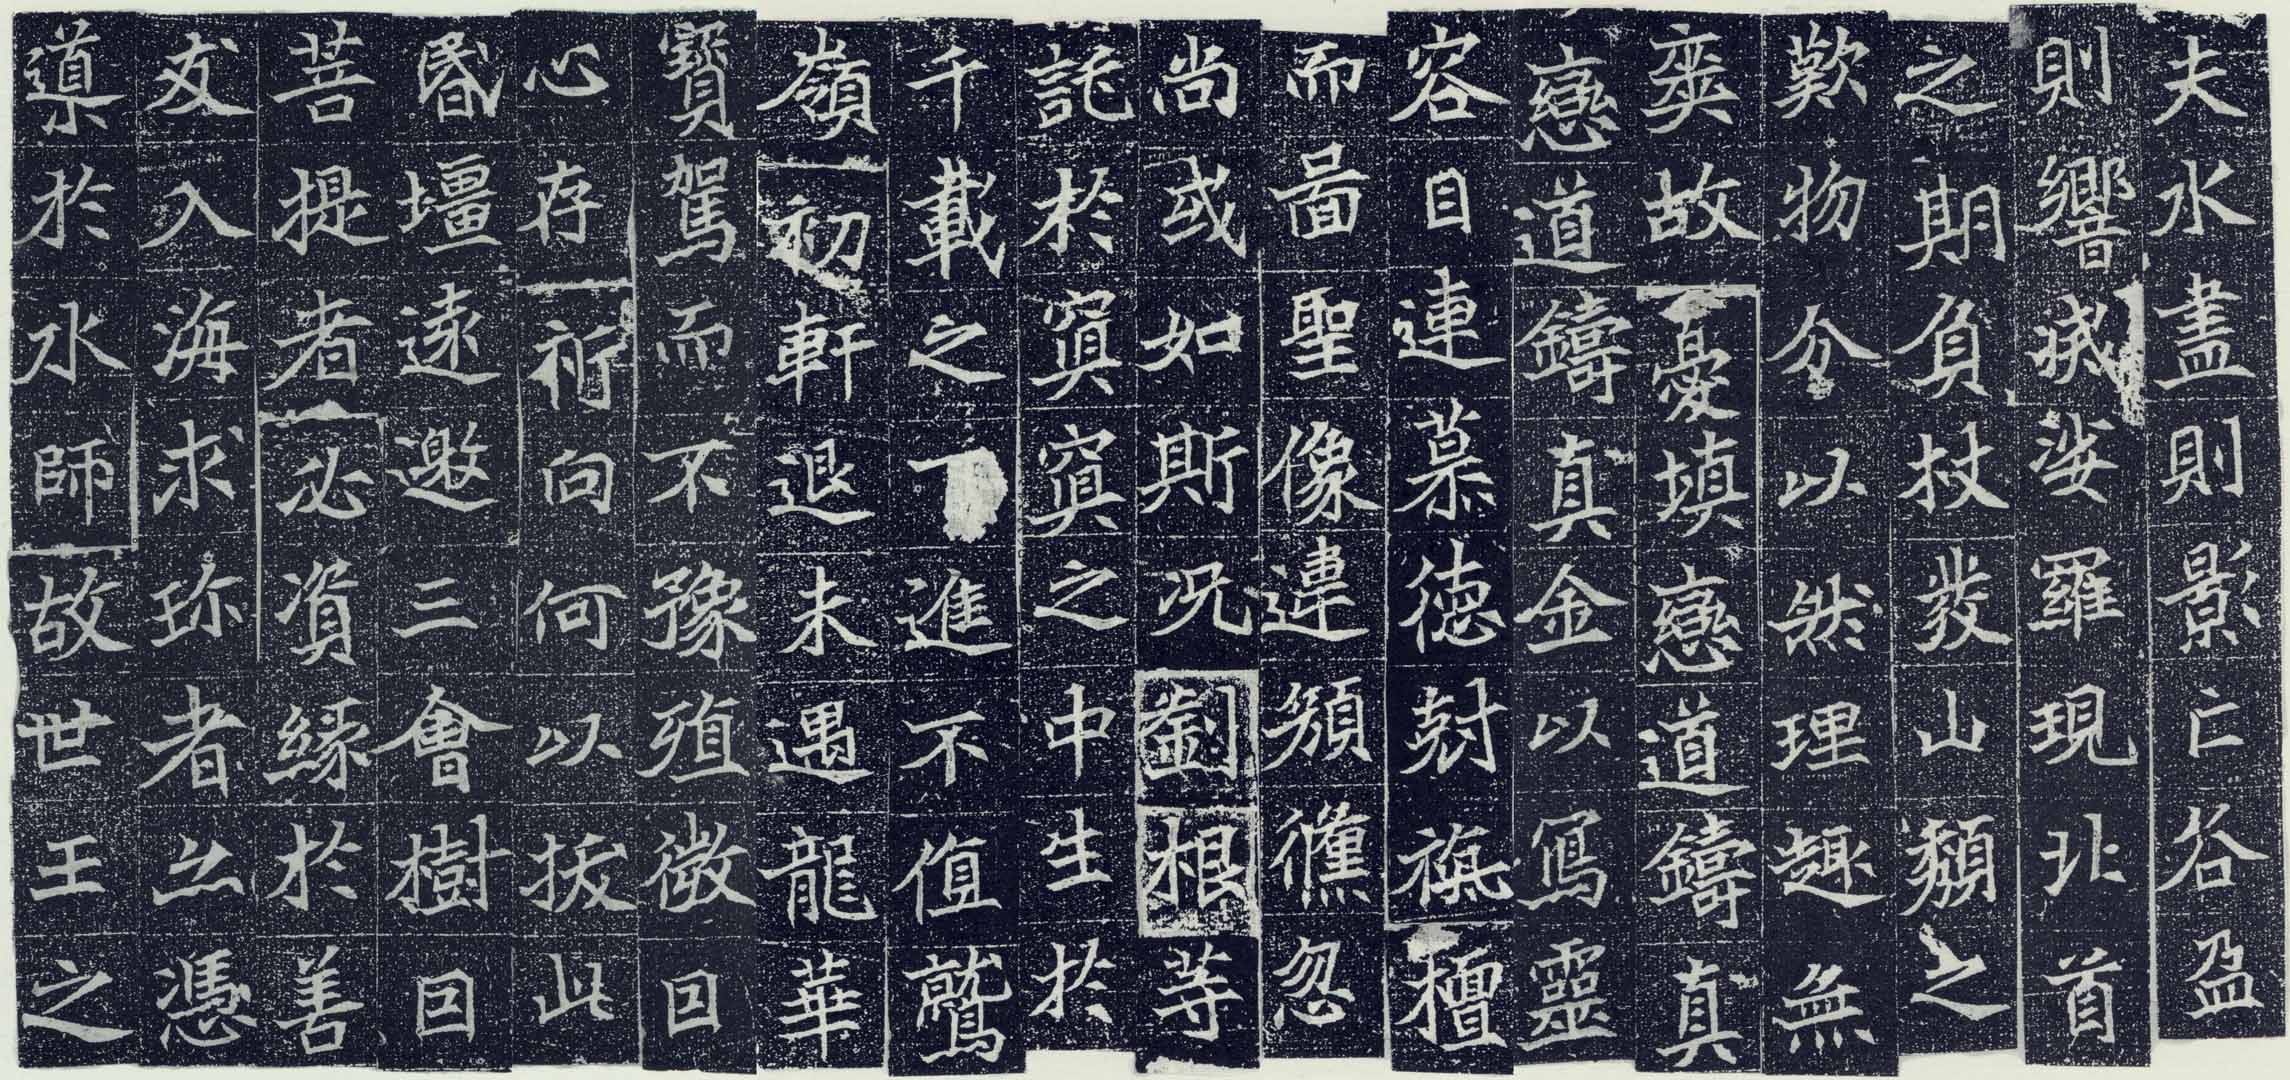 夫水盡則影亡谷盈
則響滅娑羅現北首
之期負杖發山頹之
歎物分以然理趣無
奕故憂填戀道鑄真
戀道鑄真金以寫靈
容目連慕徳剋旃檀
而啚聖像違顏儵忽
尚或如斯況劉根等
託於冥冥之中生於
千載之下進不值鷲
嶺初軒退未遇龍華
寶駕而不豫殖微囙
心存祈向何以拔此
昏壃遠邀三會樹囙
菩提者必資緣於善
友入海求珍者亦憑
導於水師故世王之